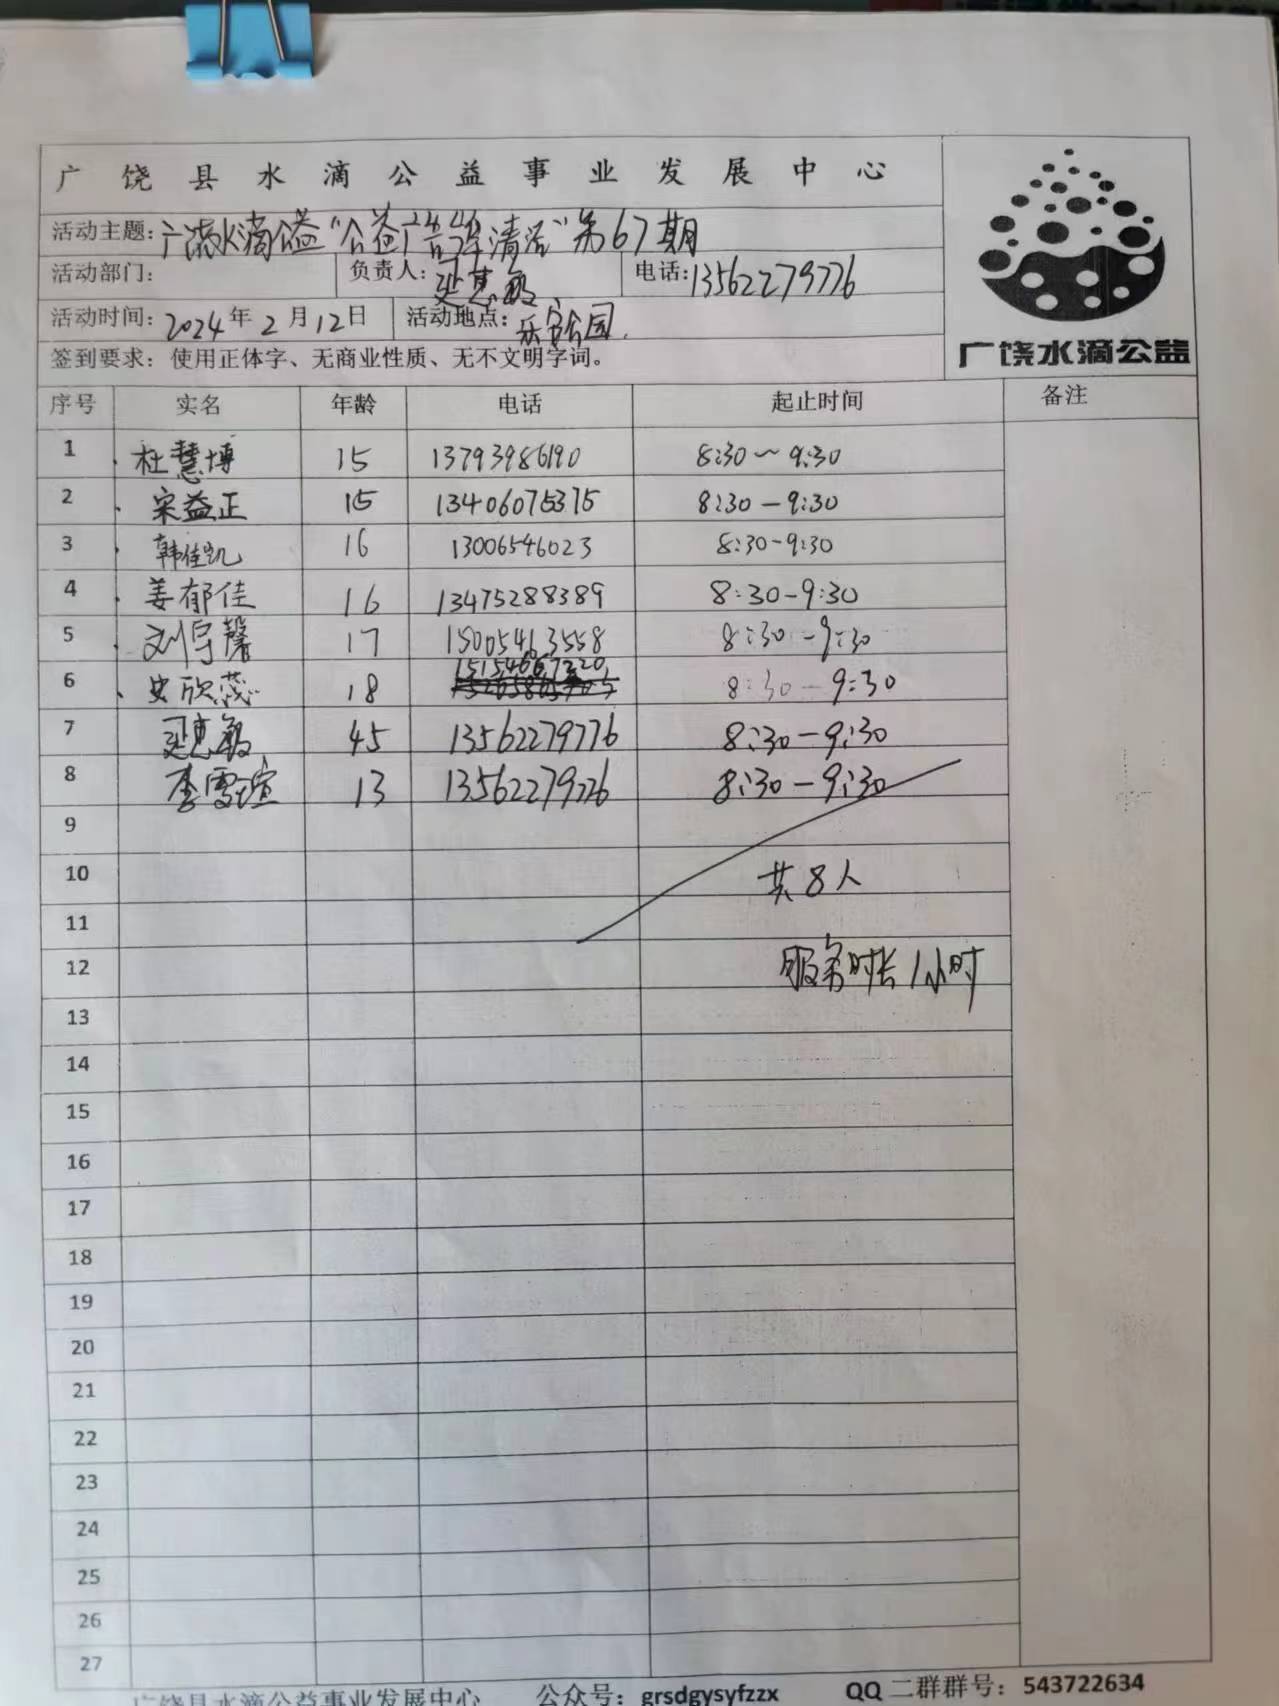 广饶县水滴公益事业发展中心
活动主题:广饶水滴公益"公益广告牌清洁"第67期
活动部门: 负责人:延惠敏 电话:13562279776
活动时间:2024年2月12日 活动地点:乐安公园.
签到要求:使用正体字、无商业性质、无不文明字词。
广饶水滴公益
序号 实名 年龄 电话 起止时间 备注
1 杜慧博 15 13793986190 8:30~9:30
2 宋益正 15 13406075375 8:30-9:30
3 韩佳凯 16 13006546023 8:30-9:30
4 姜郁佳 16 13475288389 8:30-9:30
5 刘宇馨 17 15005463558 8:30-9:30
6 史欣蕊 18 15154667220 8:30-9:30
7 延惠敏 45 13562279776 8:30-9:30
8 李雪瑄 13 13562279776 8:30-9:30
9
10 共8人
11
12 服务时长1小时
13
14
15
16
17
18
19
20
21
22
23
24
25
26
27
广饶县水滴公益事业发展中心 公众号:grsdgysyfzzx QQ二群群号:543722634